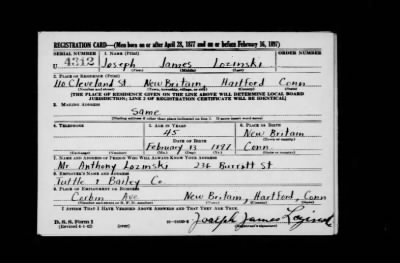 REGISTRATION CARD—(Men born on or after April 28, 1877 and on or before February 16, 1897)
SERIAL NUMBER 1. NAME (Print) ORDER NUMBER
U 4312 Joseph James Lozinski
(First) (Middle) (Last)
2. PLACE OF RESIDENCE (Print)
110 Cleveland St. New Britain, Hartford Conn
(Number and street) (Town, township, village, or city) (County) (State)
[THE PLACE OF RESIDENCE GIVEN ON THE LINE ABOVE WILL DETERMINE LOCAL BOARD
JURISDICTION; LINE 2 OF REGISTRATION CERTIFICATE WILL BE IDENTICAL]
3. MAILING ADDRESS
Same
[Mailing address if other than place indicated on line 2. If same insert word same]
4. TELEPHONE 5. AGE IN YEARS 6. PLACE OF BIRTH
45 New Britain
DATE OF BIRTH (Town or county)
February 13 1897 Conn.
(Exchange) (Number) (Mo.) (Day) (Yr.) (State or country)
7. NAME AND ADDRESS OF PERSON WHO WILL ALWAYS KNOW YOUR ADDRESS
Mr Anthony Lozinski 234 Burritt St
8. EMPLOYER'S NAME AND ADDRESS
Tuttle & Bailey Co.
9. PLACE OF EMPLOYMENT OR BUSINESS
Corbin Ave New Britain, Hartford, Conn
(Number and street or R. F. D. number) (Town) (County) (State)
I AFFIRM THAT I HAVE VERIFIED ABOVE ANSWERS AND THAT THEY ARE TRUE.
D. S. S. Form 1
(Revised 4-1-42) (Registrant's signature)
Joseph James